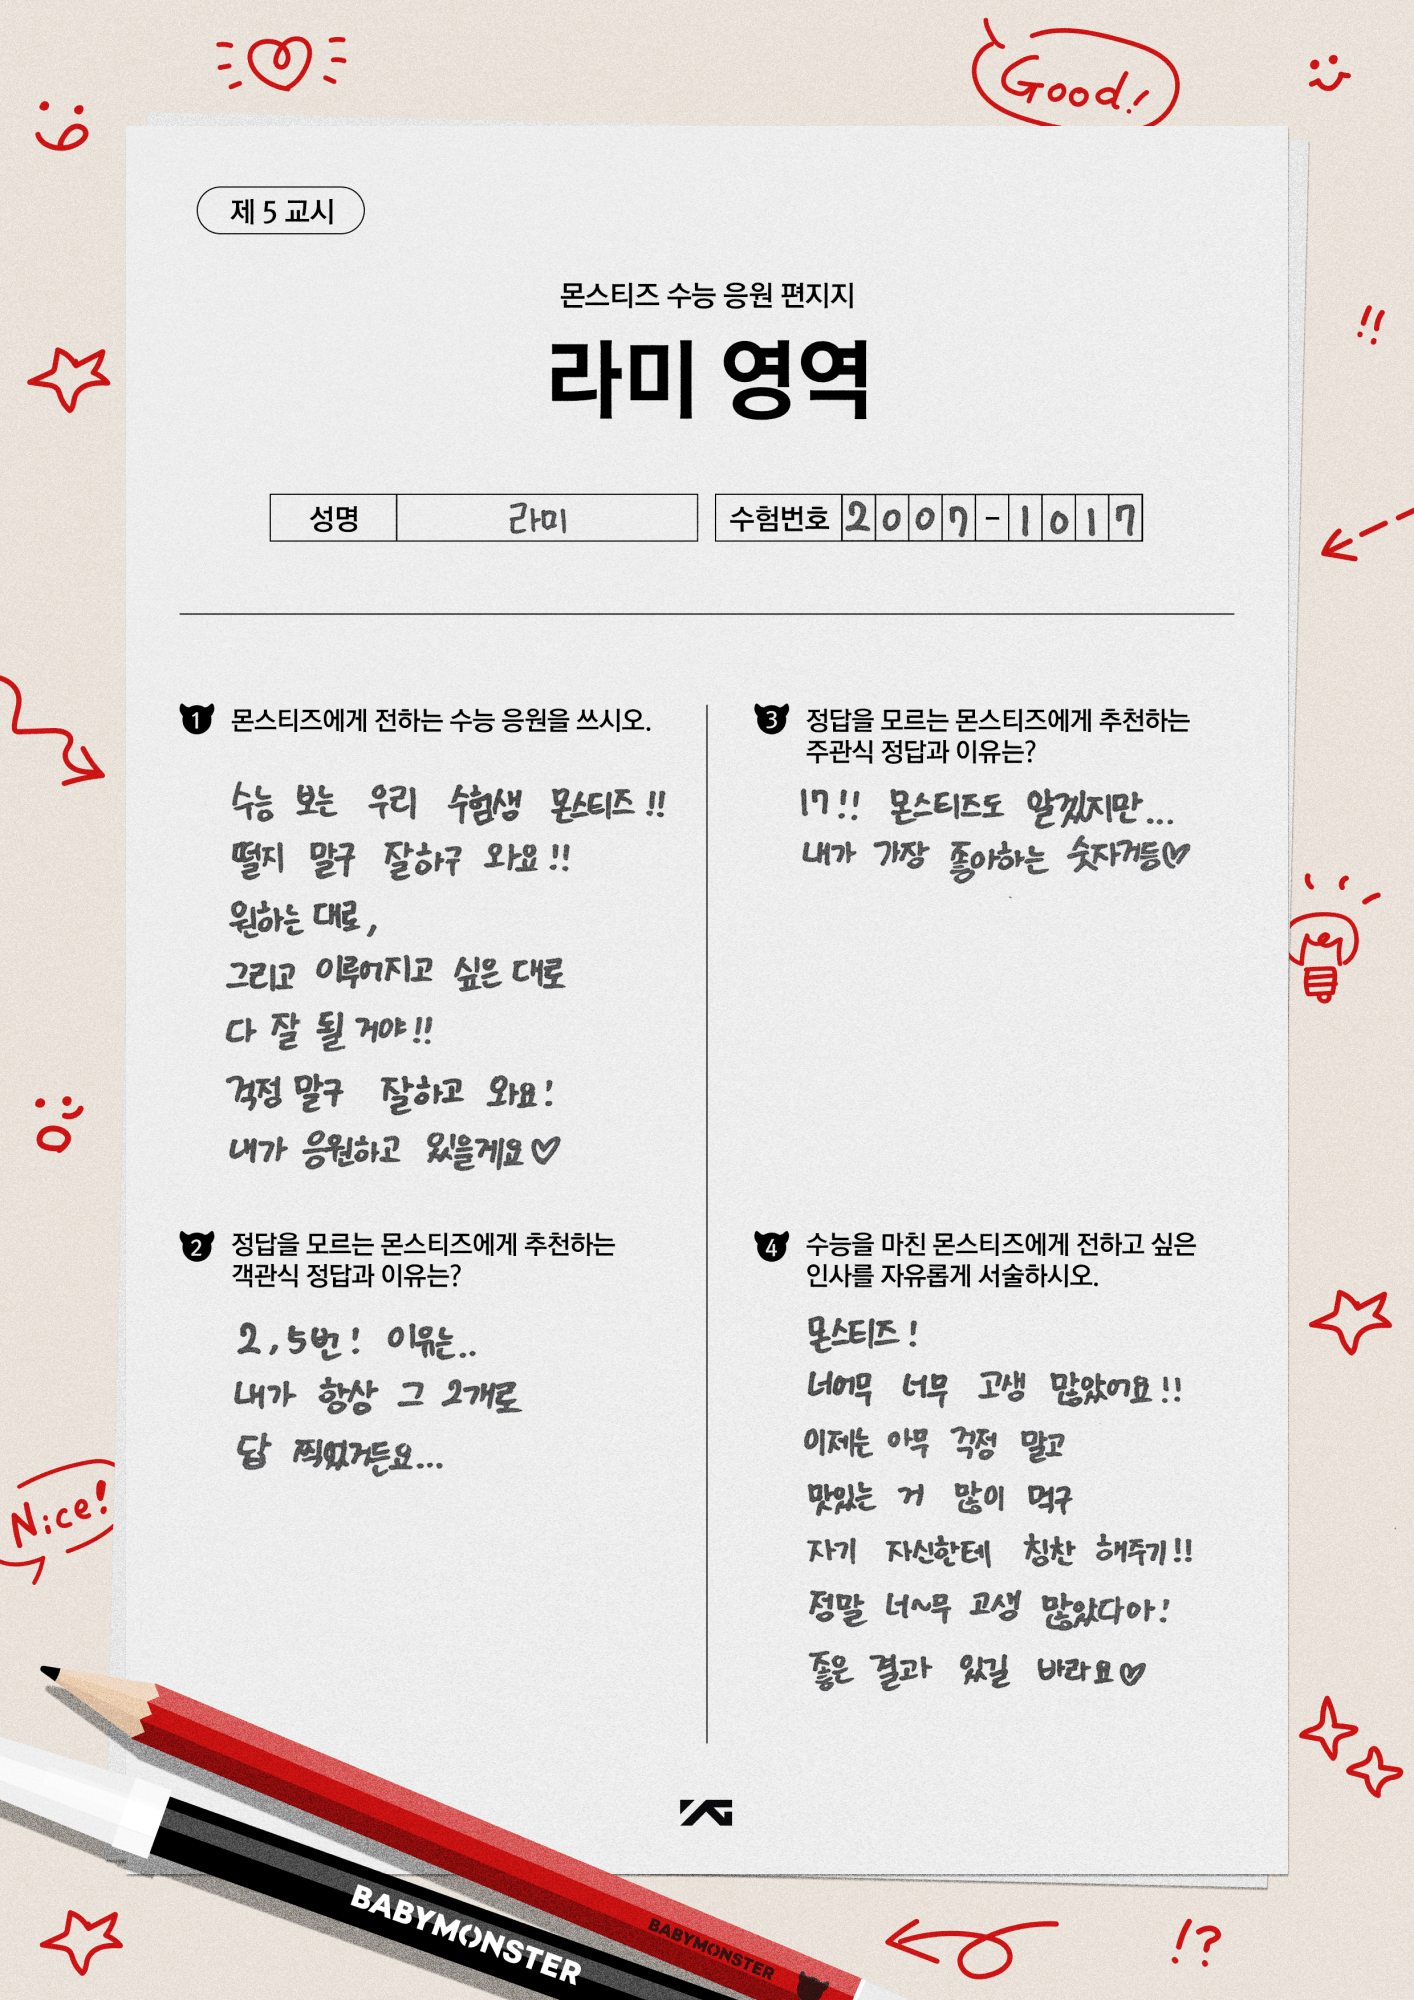 Good!
제 5 교시
몬스티즈 수능 응원 편지지
라미 영역
성명 라미 수험번호 2007-1017
1 몬스티즈에게 전하는 수능 응원을 쓰시오.
수능 보는 우리 수험생 몬스티즈!!
떨지 말구 잘하구 와요!!
원하는 대로,
그리고 이루어지고 싶은 대로
다 잘 될 거야!!
걱정 말구 잘하고 와요!
내가 응원하고 있을게요♡
2 정답을 모르는 몬스티즈에게 추천하는
객관식 정답과 이유는?
2, 5번! 이유는..
내가 항상 그 2개로
답 찍었거든요...
3 정답을 모르는 몬스티즈에게 추천하는
주관식 정답과 이유는?
17!! 몬스티즈도 알겠지만...
내가 가장 좋아하는 숫자거등♡
4 수능을 마친 몬스티즈에게 전하고 싶은
인사를 자유롭게 서술하시오.
몬스티즈!
너어무 너무 고생 많았어요!!
이제는 아무 걱정 말고
맛있는 거 많이 먹구
자기 자신한테 칭찬 해주기!!
정말 너~무 고생 많았다아!
좋은 결과 있길 바라요♡
Nice!
YG
BABYMONSTER
BABYMONSTER
!!
!?